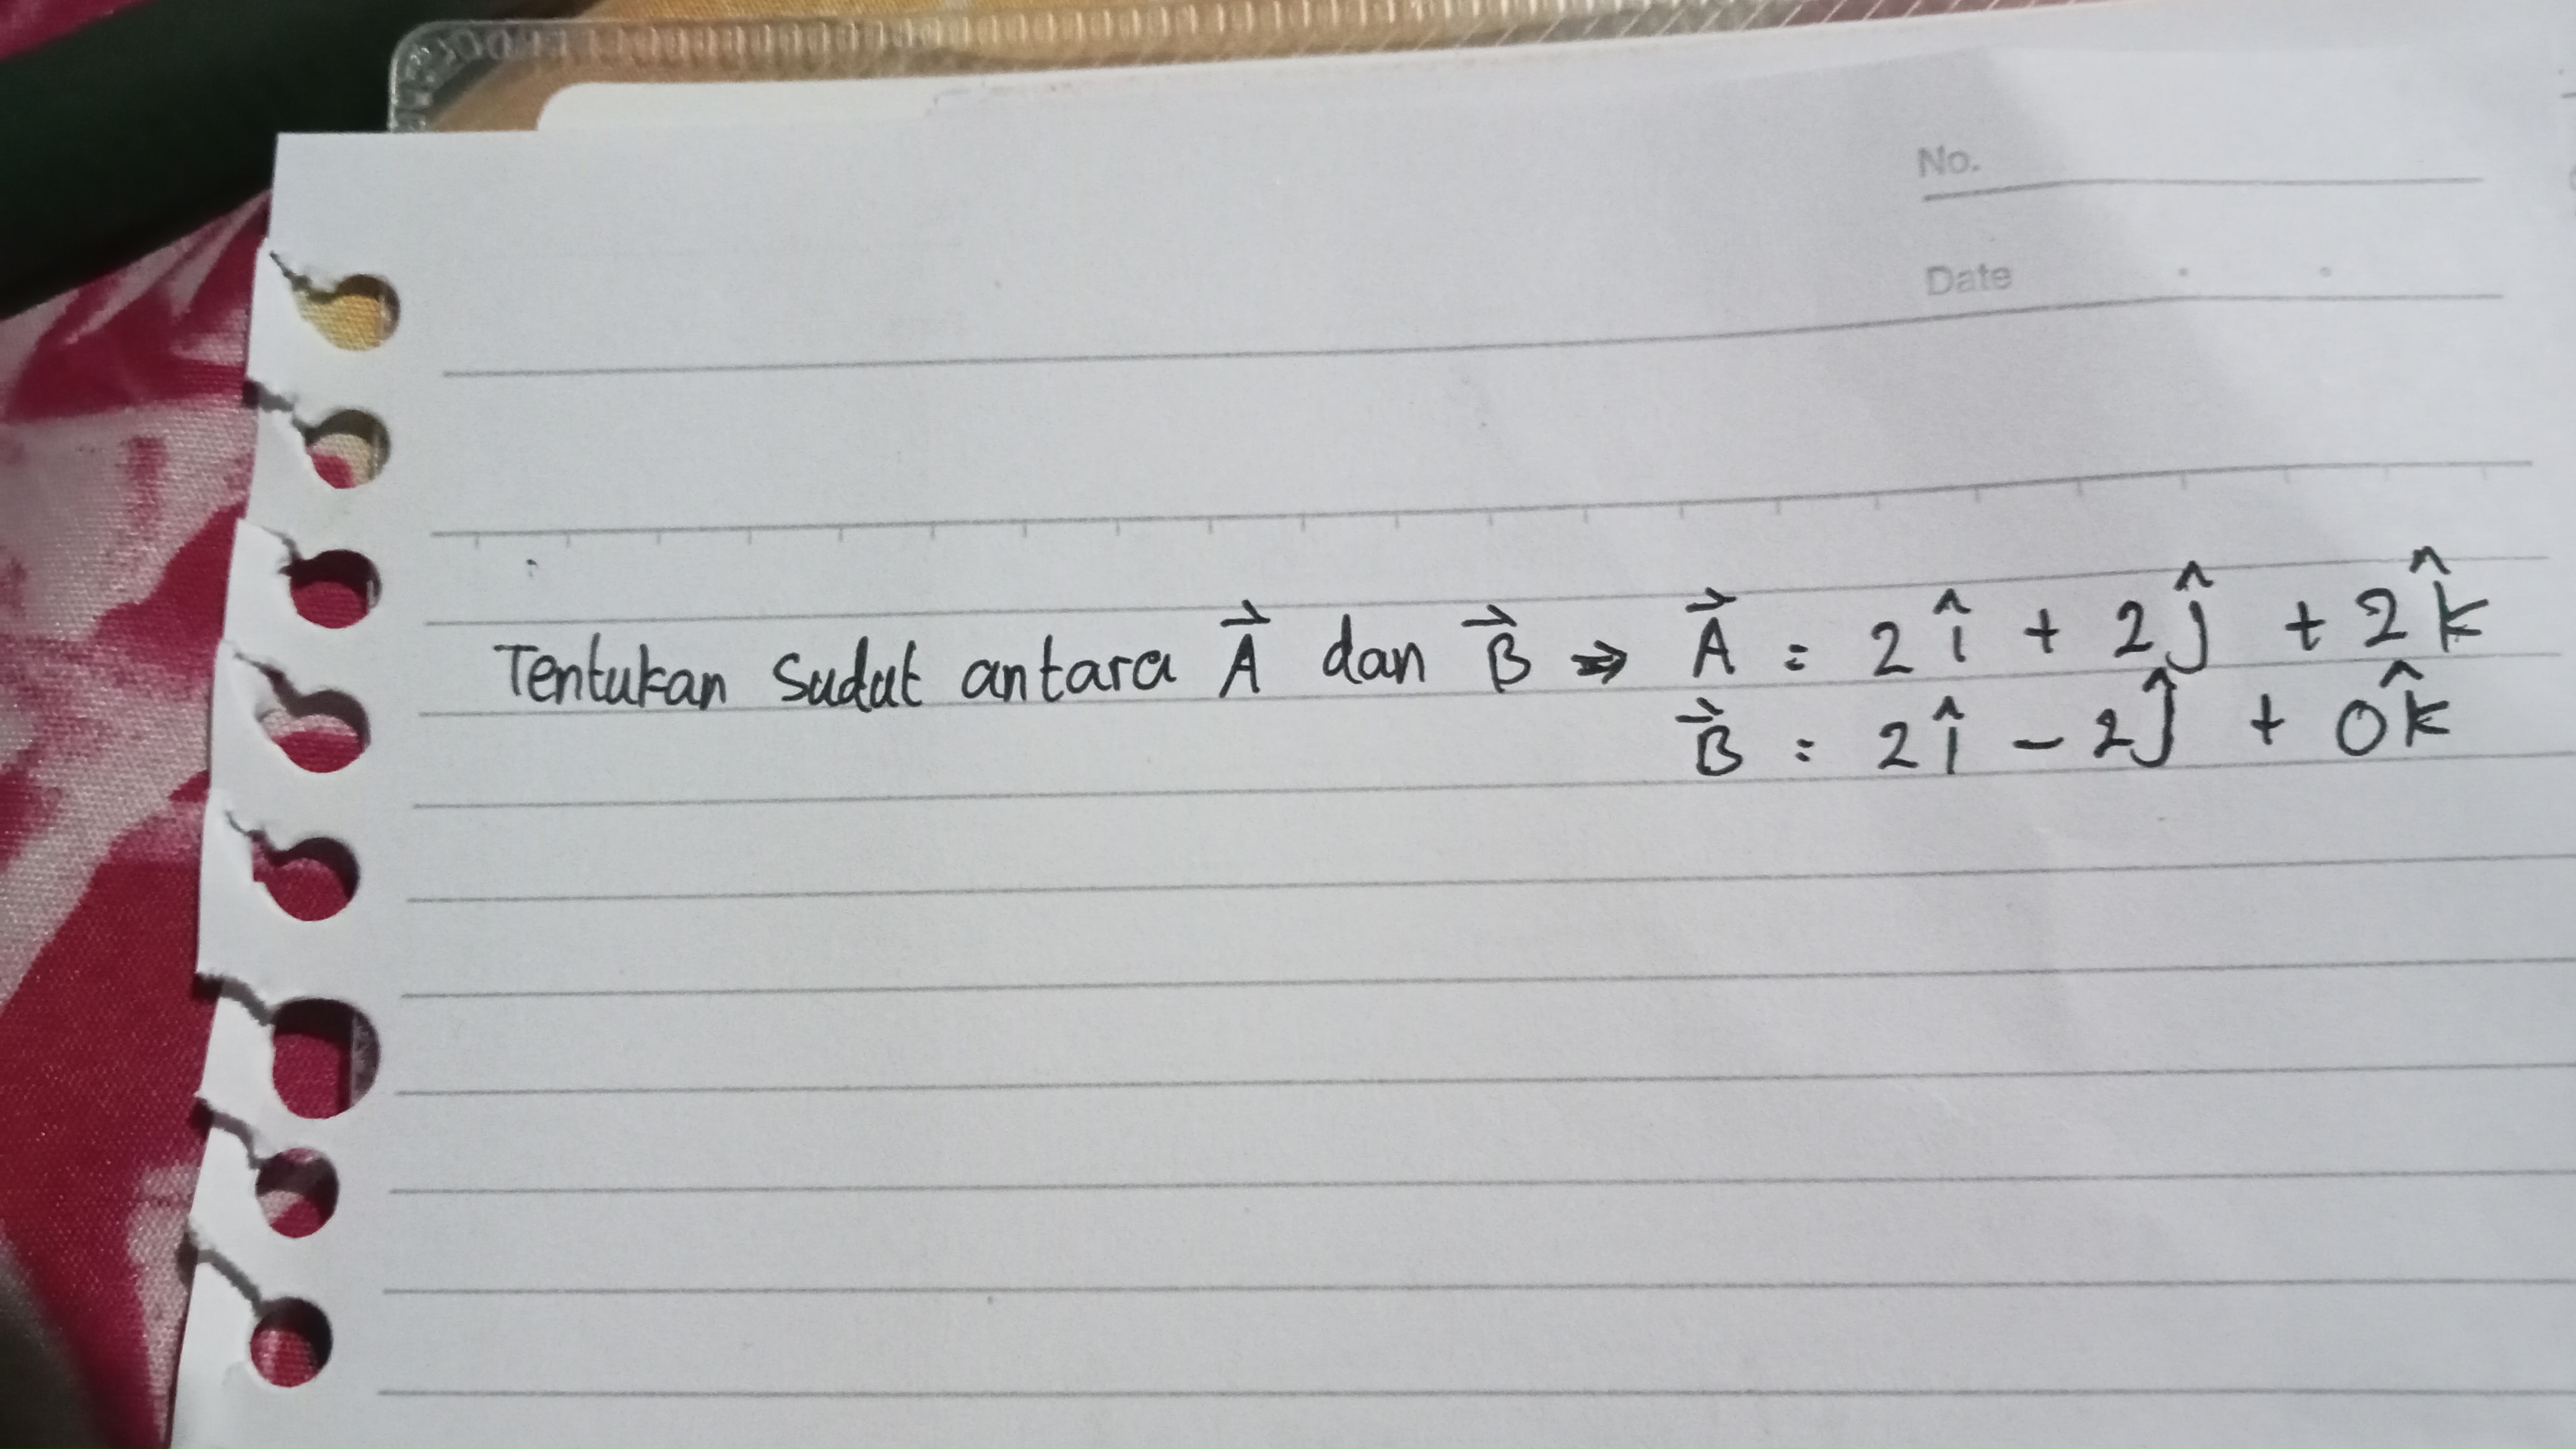 No.
Date
Tentukan Sudut antara A⃗ dan B⃗ => A⃗ = 2î + 2ĵ + 2k̂
B⃗ = 2î - 2ĵ + 0k̂